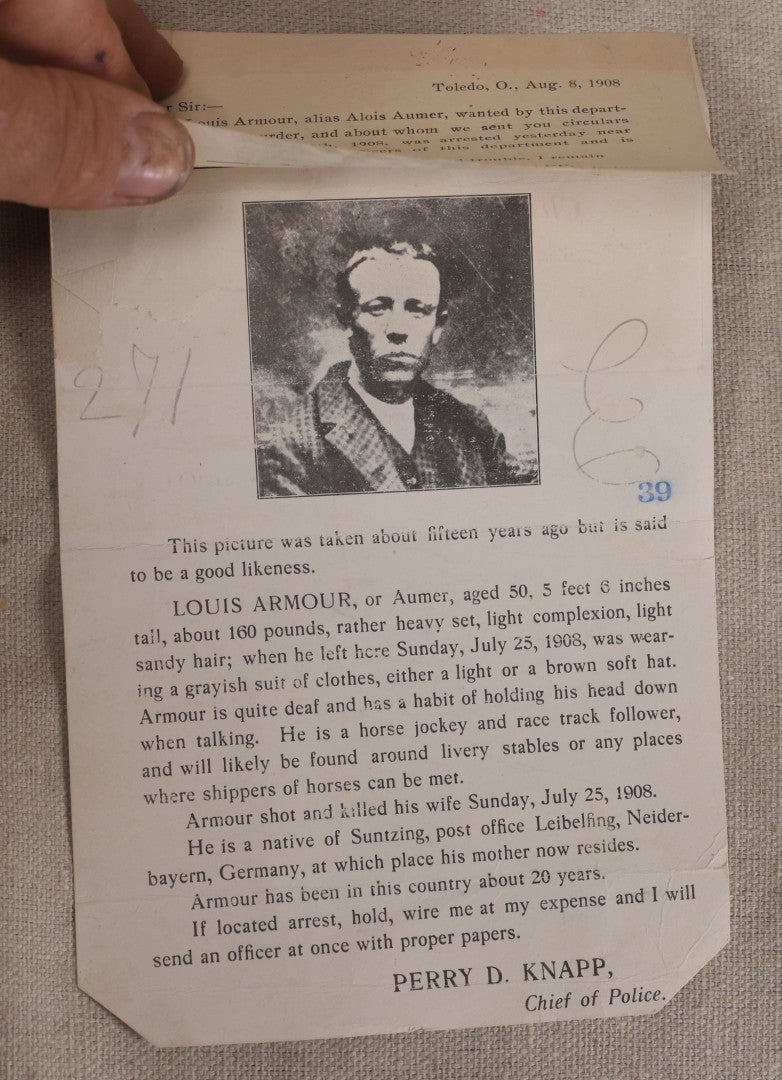 Toledo, O., Aug. 8, 1908
r Sir:—
ouis Armour, alias Alois Aumer, wanted by this depart-
rder, and about whom we sent you circulars
1908, was arrested yesterday near
of this department and is
trouble, I remain
271
E
39
This picture was taken about fifteen years ago but is said
to be a good likeness.
LOUIS ARMOUR, or Aumer, aged 50, 5 feet 6 inches
tall, about 160 pounds, rather heavy set, light complexion, light
sandy hair; when he left here Sunday, July 25, 1908, was wear-
ing a grayish suit of clothes, either a light or a brown soft hat.
Armour is quite deaf and has a habit of holding his head down
when talking. He is a horse jockey and race track follower,
and will likely be found around livery stables or any places
where shippers of horses can be met.
Armour shot and killed his wife Sunday, July 25, 1908.
He is a native of Suntzing, post office Leibelfing, Neider-
bayern, Germany, at which place his mother now resides.
Armour has been in this country about 20 years.
If located arrest, hold, wire me at my expense and I will
send an officer at once with proper papers.
PERRY D. KNAPP,
Chief of Police.